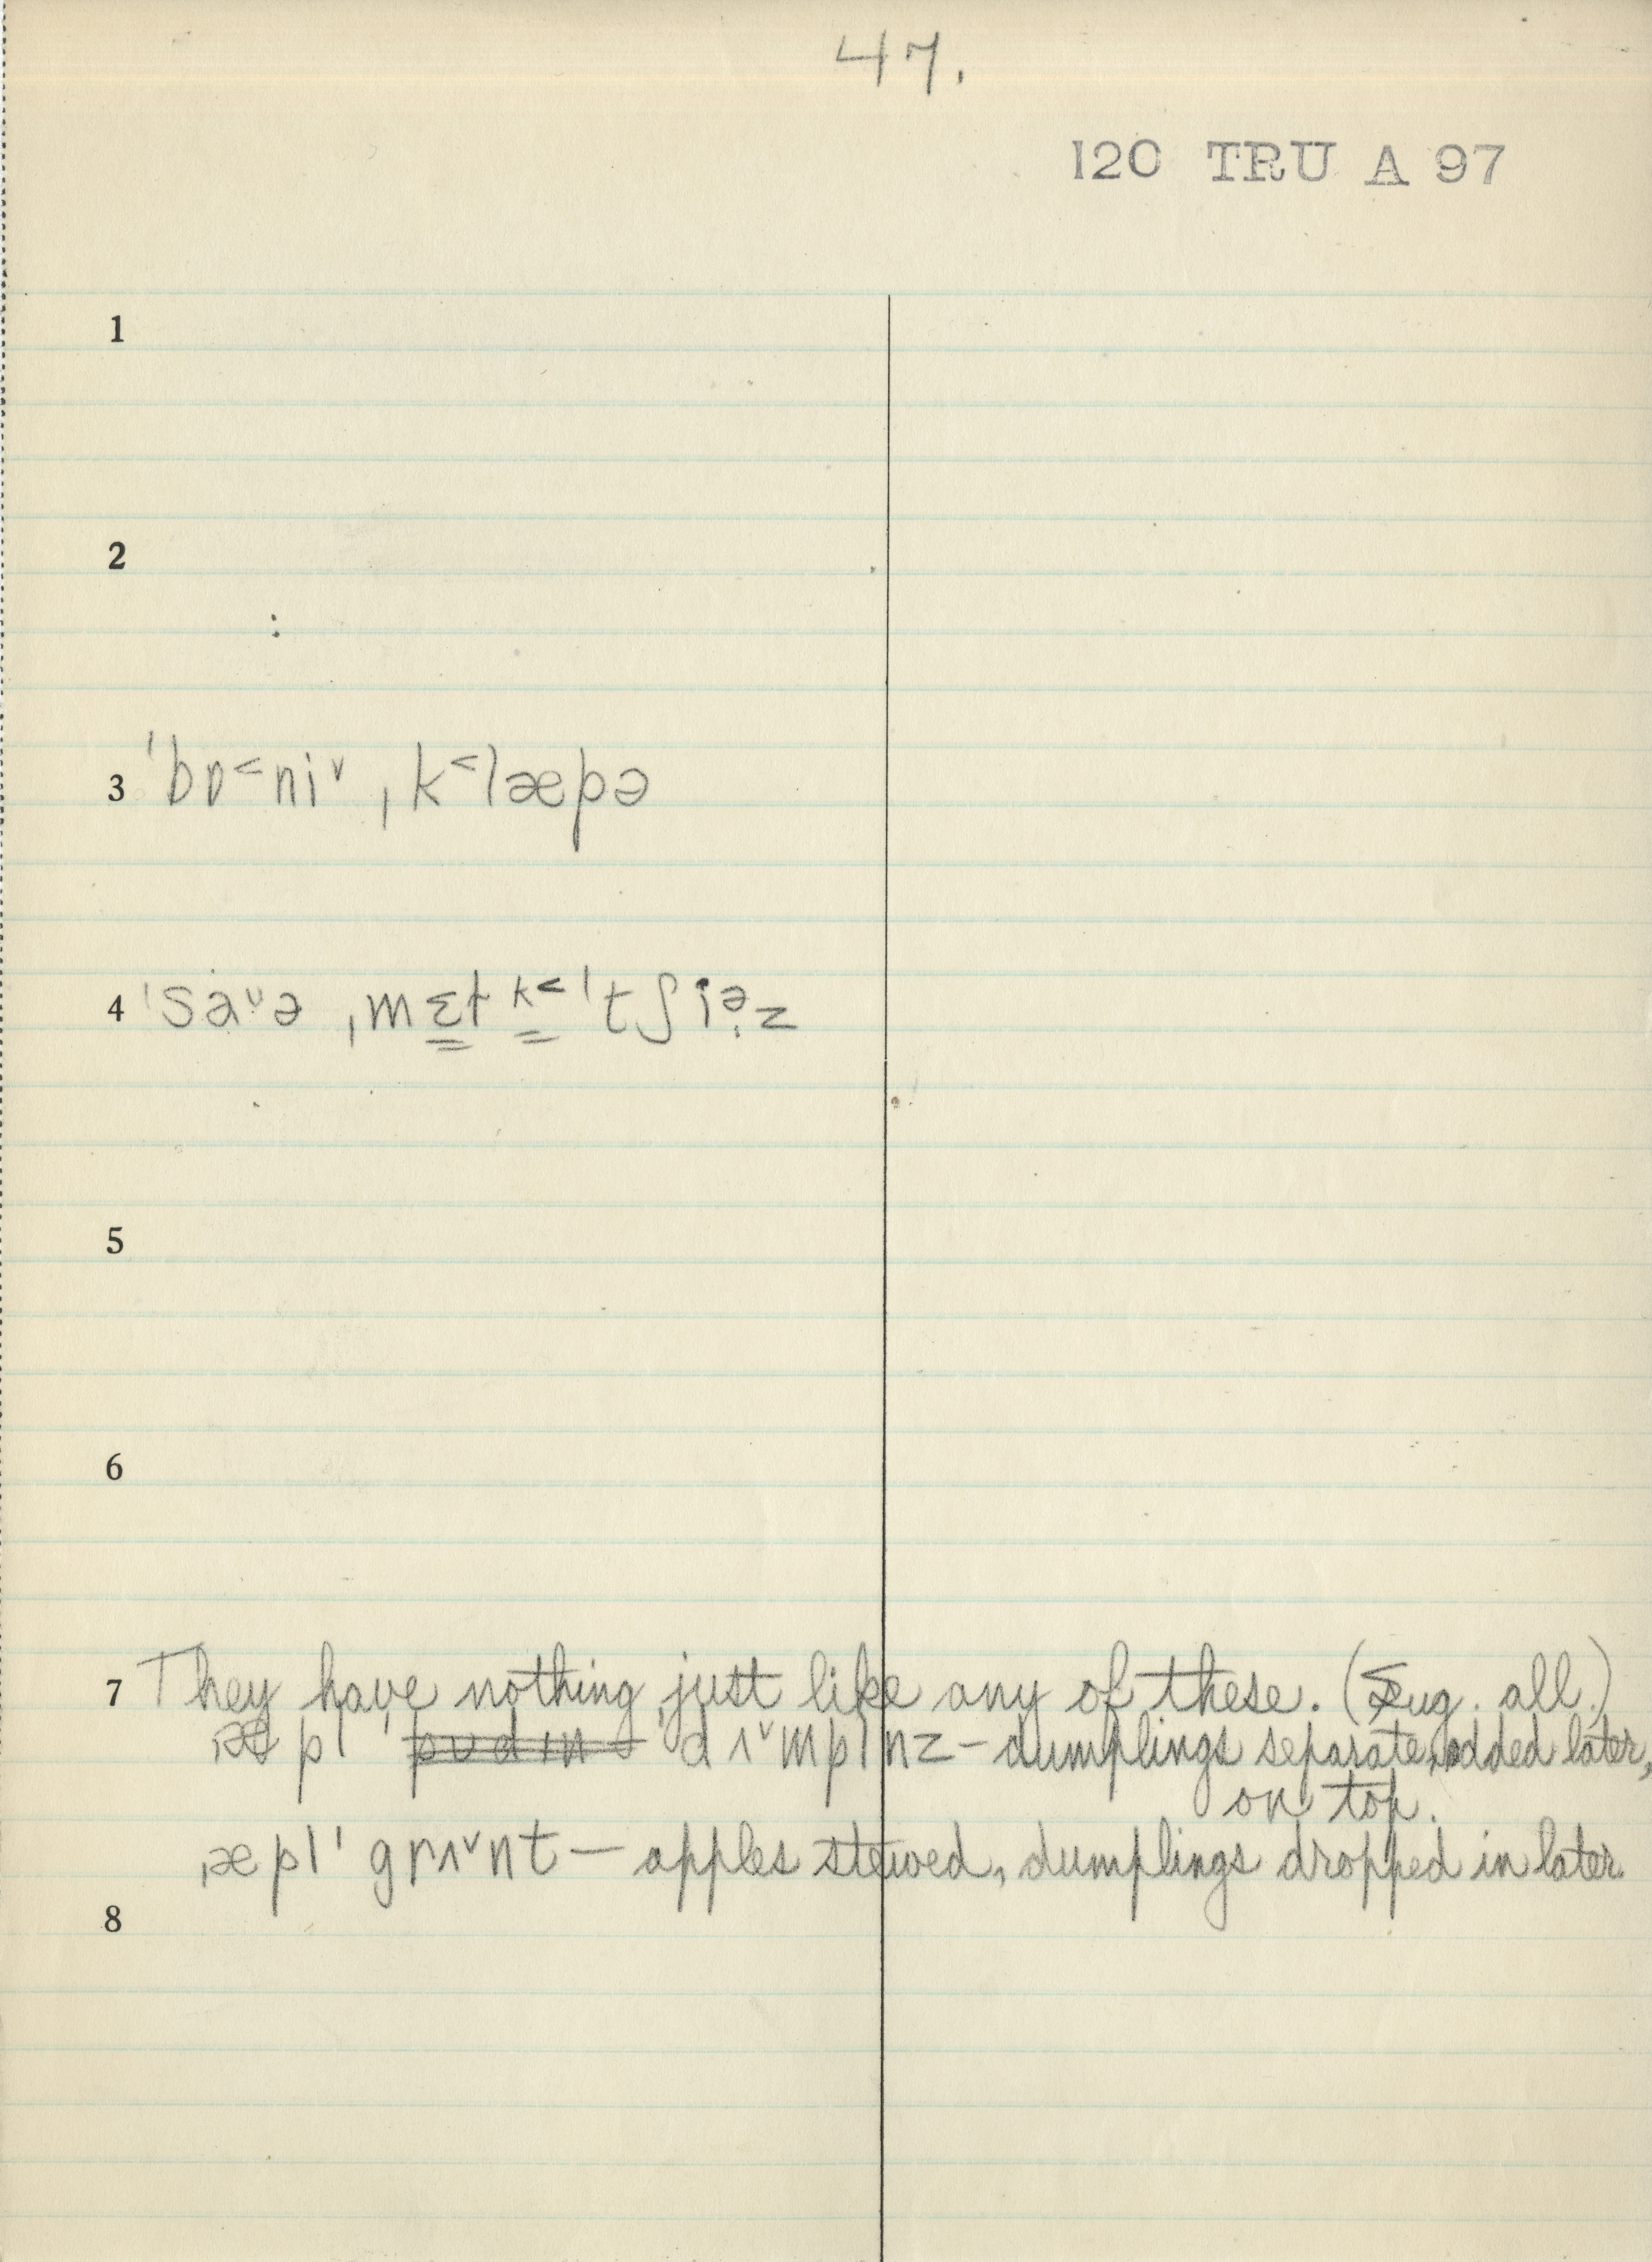 47.
120 TRU A 97
1
2
:
3 ˈbɒ˂ni˅ ˌk˂læpə
4 ˈsa˅ə ˌmɛt k˂ ˈtʃiə̣z
5
6
7 They have nothing just like any of these. (Sug. all.)
ˌæpl ˈpʊdɪn ˈdʌ˅mplnz – dumplings separate, added later,
on top.
ˌæplˈ grʌ˅nt – apples stewed, dumplings dropped in later.
8